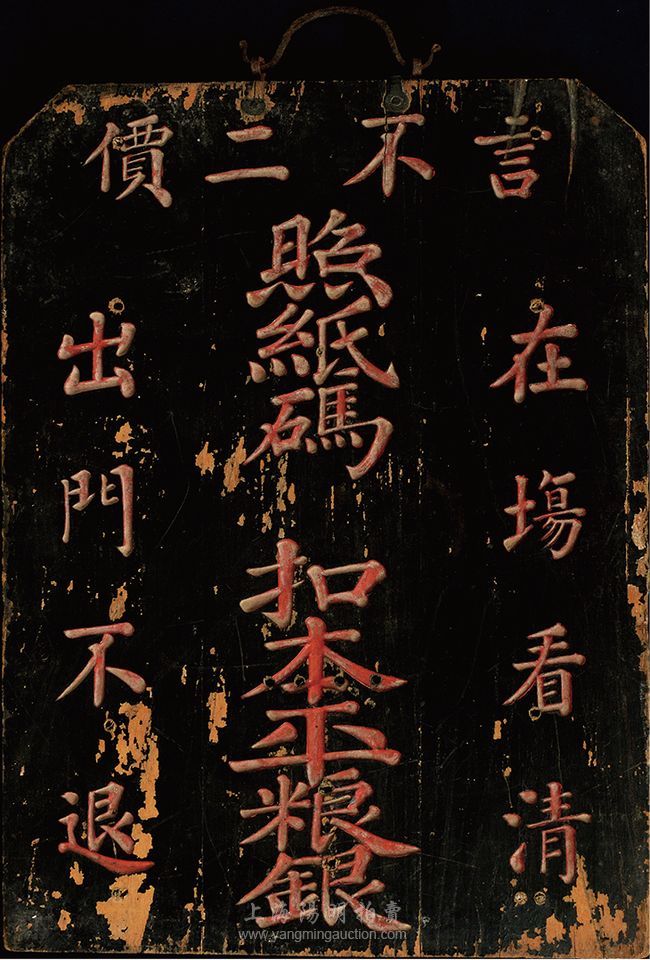 言不二價
在塲看清
照紙碼 扣本平粮銀
出門不退
上海陽明拍賣
www.yangmingauction.com